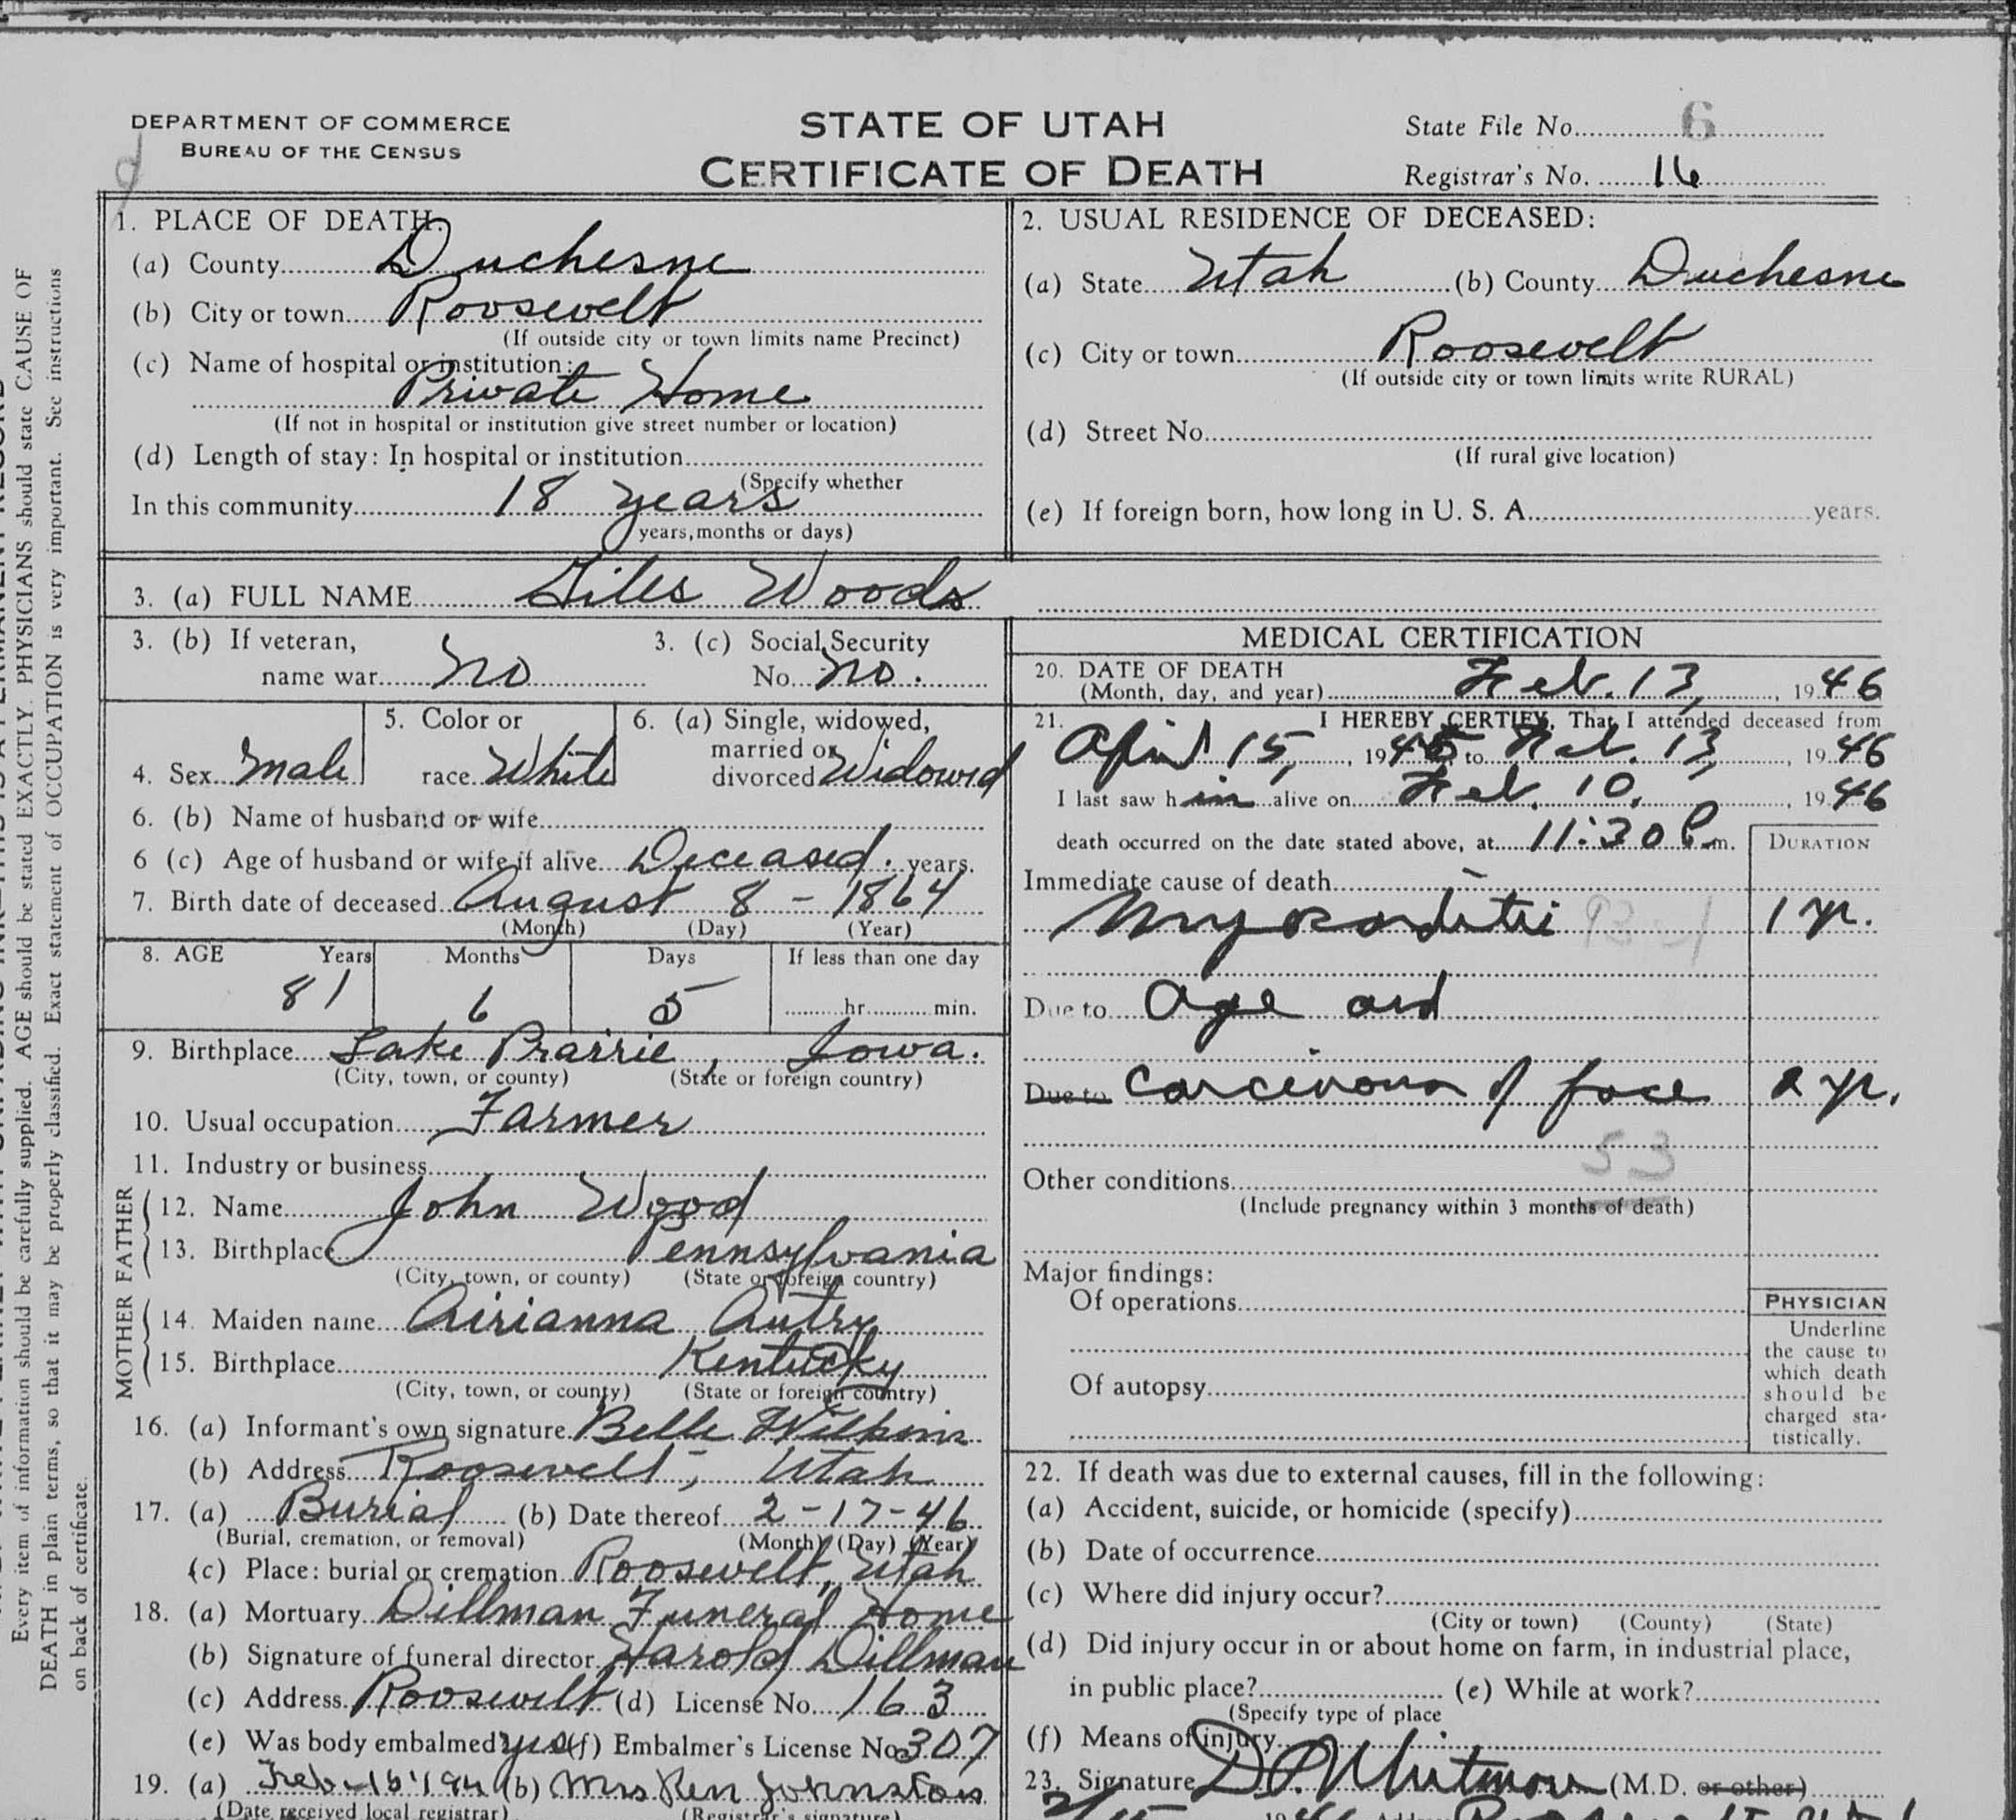 DEPARTMENT OF COMMERCE
BUREAU OF THE CENSUS
STATE OF UTAH
CERTIFICATE OF DEATH
State File No. 6
Registrar's No. 16
1. PLACE OF DEATH:
(a) County Duchesne
(b) City or town Roosevelt
(If outside city or town limits name Precinct)
(c) Name of hospital or institution:
Private Home
(If not in hospital or institution give street number or location)
(d) Length of stay: In hospital or institution
(Specify whether
In this community 18 years
years, months or days)
2. USUAL RESIDENCE OF DECEASED:
(a) State Utah (b) County Duchesne
(c) City or town Roosevelt
(If outside city or town limits write RURAL)
(d) Street No.
(If rural give location)
(e) If foreign born, how long in U. S. A. years.
3. (a) FULL NAME Giles Woods
3. (b) If veteran,
name war no
3. (c) Social Security
No. no.
4. Sex Male
5. Color or
race White
6. (a) Single, widowed,
married or
divorced Widowed
6. (b) Name of husband or wife
6 (c) Age of husband or wife if alive Deceased. years.
7. Birth date of deceased August 8 - 1864
(Month) (Day) (Year)
8. AGE Years Months Days If less than one day
81 6 5 hr. min.
9. Birthplace Lake Prairie, Iowa.
(City, town, or county) (State or foreign country)
10. Usual occupation Farmer
11. Industry or business
FATHER
12. Name John Wood
13. Birthplace Pennsylvania
(City, town, or county) (State or foreign country)
MOTHER
14. Maiden name Airianna Autry
15. Birthplace Kentucky
(City, town, or county) (State or foreign country)
16. (a) Informant's own signature Belle Wilkins
(b) Address Roosevelt, Utah
17. (a) Burial (b) Date thereof 2-17-46
(Burial, cremation, or removal) (Month) (Day) (Year)
(c) Place: burial or cremation Roosevelt, Utah
18. (a) Mortuary Dillman Funeral Home
(b) Signature of funeral director Harold Dillman
(c) Address Roosevelt (d) License No. 163
(e) Was body embalmed? yes (f) Embalmer's License No. 307
19. (a) Feb-16 (b) Mrs Ren Johnston
(Date received local registrar) (Registrar's signature)
MEDICAL CERTIFICATION
20. DATE OF DEATH
(Month, day, and year) Feb. 13, 1946
21. I HEREBY CERTIFY, That I attended deceased from
April 15, 1945 to Feb. 13, 1946
I last saw him alive on Feb. 10, 1946
death occurred on the date stated above, at 11:30 P.m. DURATION
Immediate cause of death
Myocarditis 1 yr.
Due to age and
Due to carcinoma of face 2 yr.
53
Other conditions
(Include pregnancy within 3 months of death)
Major findings:
Of operations
Of autopsy
PHYSICIAN
Underline
the cause to
which death
should be
charged sta-
tistically.
22. If death was due to external causes, fill in the following:
(a) Accident, suicide, or homicide (specify)
(b) Date of occurrence
(c) Where did injury occur?
(City or town) (County) (State)
(d) Did injury occur in or about home on farm, in industrial place,
in public place? (e) While at work?
(Specify type of place
(f) Means of injury
23. Signature D.P. Whitmore (M.D. or other)
Every item of information should be carefully supplied. AGE should be stated EXACTLY. PHYSICIANS should state CAUSE OF
DEATH in plain terms, so that it may be properly classified. Exact statement of OCCUPATION is very important. See instructions
on back of certificate.